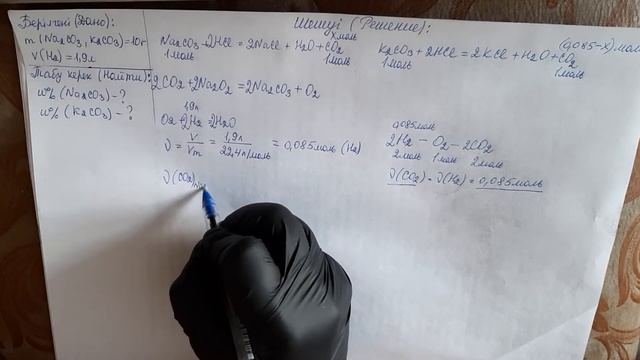 Берілгені (Дано):
m (Na2CO3, K2CO3) = 10г
V (H2) = 1,9л
Табу керек (Найти):
w% (Na2CO3) - ?
w% (K2CO3) - ?
Шешуі (Решение):
x моль
Na2CO3 + 2HCl = 2NaCl + H2O + CO2
1моль 1моль
(0,085-x) моль
K2CO3 + 2HCl = 2KCl + H2O + CO2
1моль 1моль
2CO2 + 2Na2O2 = 2Na2CO3 + O2
1,9л
O2 + 2H2 = 2H2O
ν = V/Vm = 1,9л/22,4л/моль = 0,085моль (H2)
0,085моль
2H2 – O2 – 2CO2
2моль 1моль 2моль
ν(CO2) = ν(H2) = 0,085моль
ν(CO2)